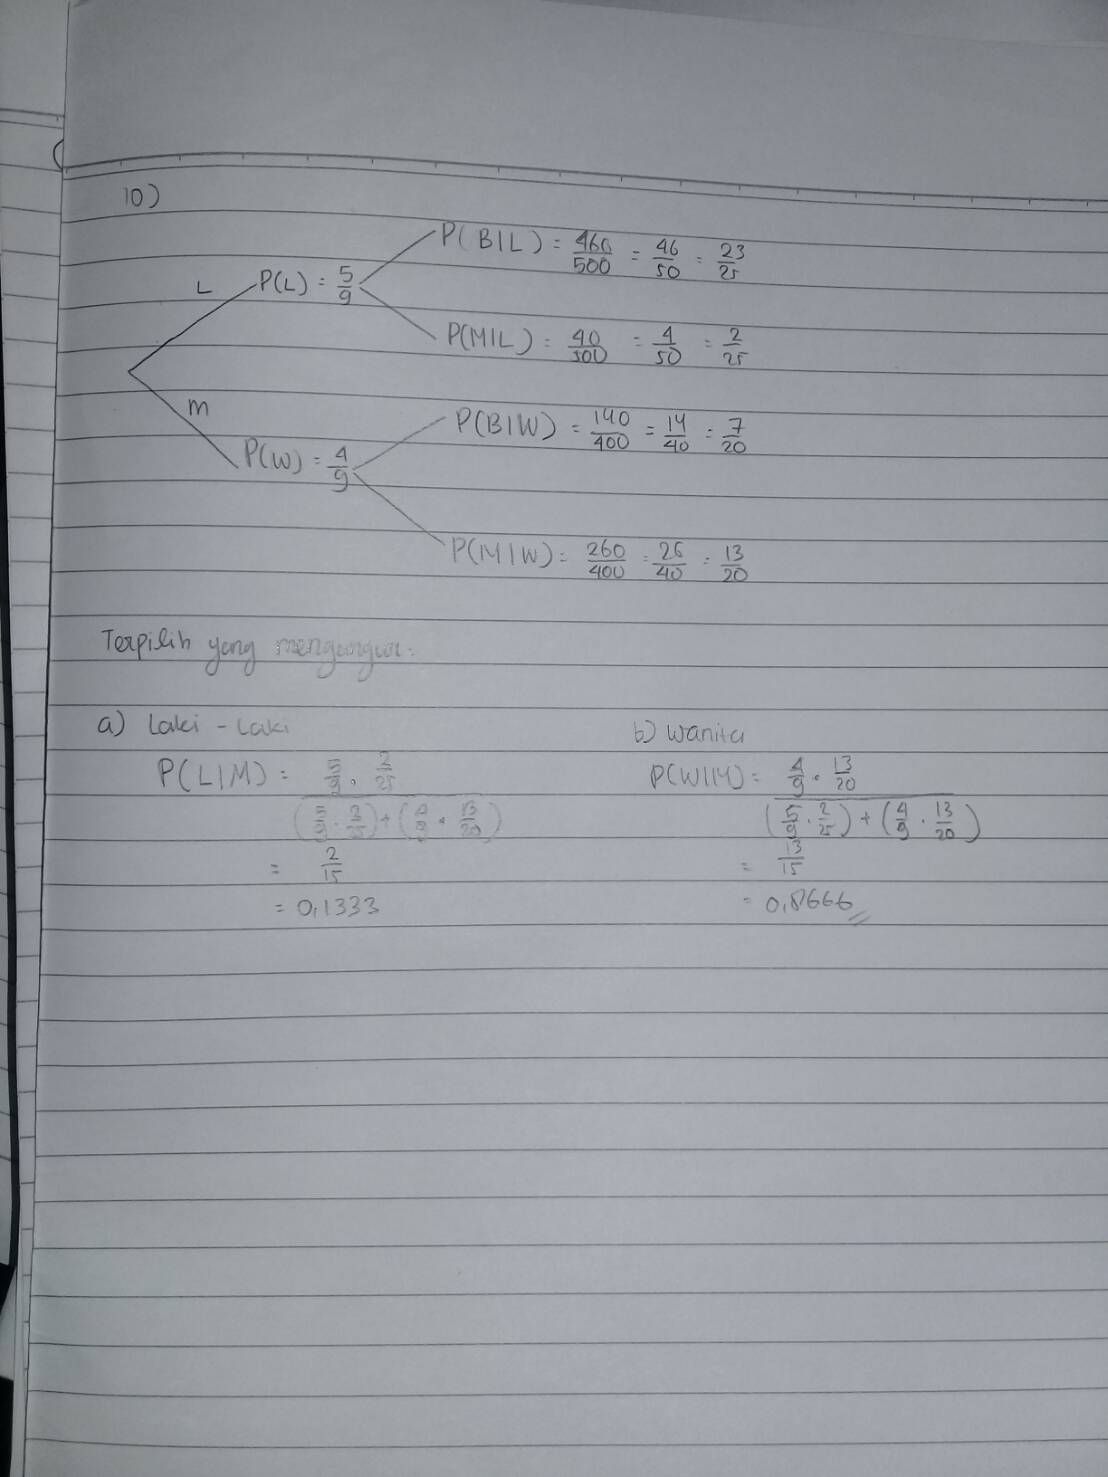 10)
P(B|L) = 460/500 = 46/50 = 23/25
L P(L) = 5/9
P(M|L) = 40/500 = 4/50 = 2/25
m
P(B|W) = 140/400 = 14/40 = 7/20
P(W) = 4/9
P(M|W) = 260/400 = 26/40 = 13/20
Terpilih yang menganggur:
a) Laki - Laki
P(L|M) = 5/9 . 2/25 / (5/9 . 2/25) + (4/9 . 13/20)
= 2/15
= 0,1333
b) Wanita
P(W|M) = 4/9 . 13/20 / (5/9 . 2/25) + (4/9 . 13/20)
= 13/15
= 0,8666